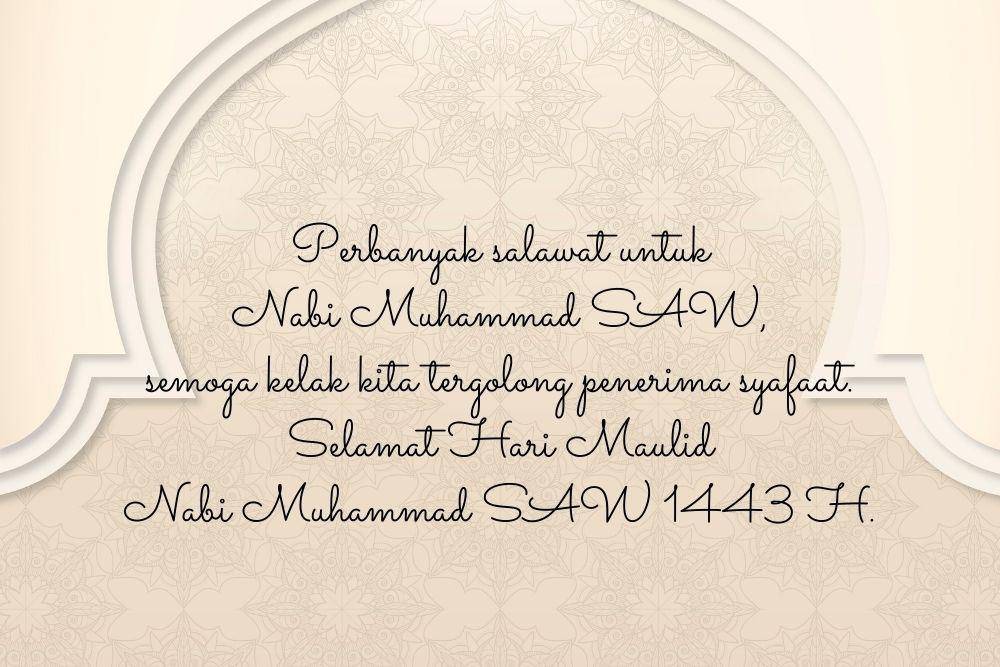 Perbanyak salawat untuk
Nabi Muhammad SAW,
semoga kelak kita tergolong penerima syafaat.
Selamat Hari Maulid
Nabi Muhammad SAW 1443 H.